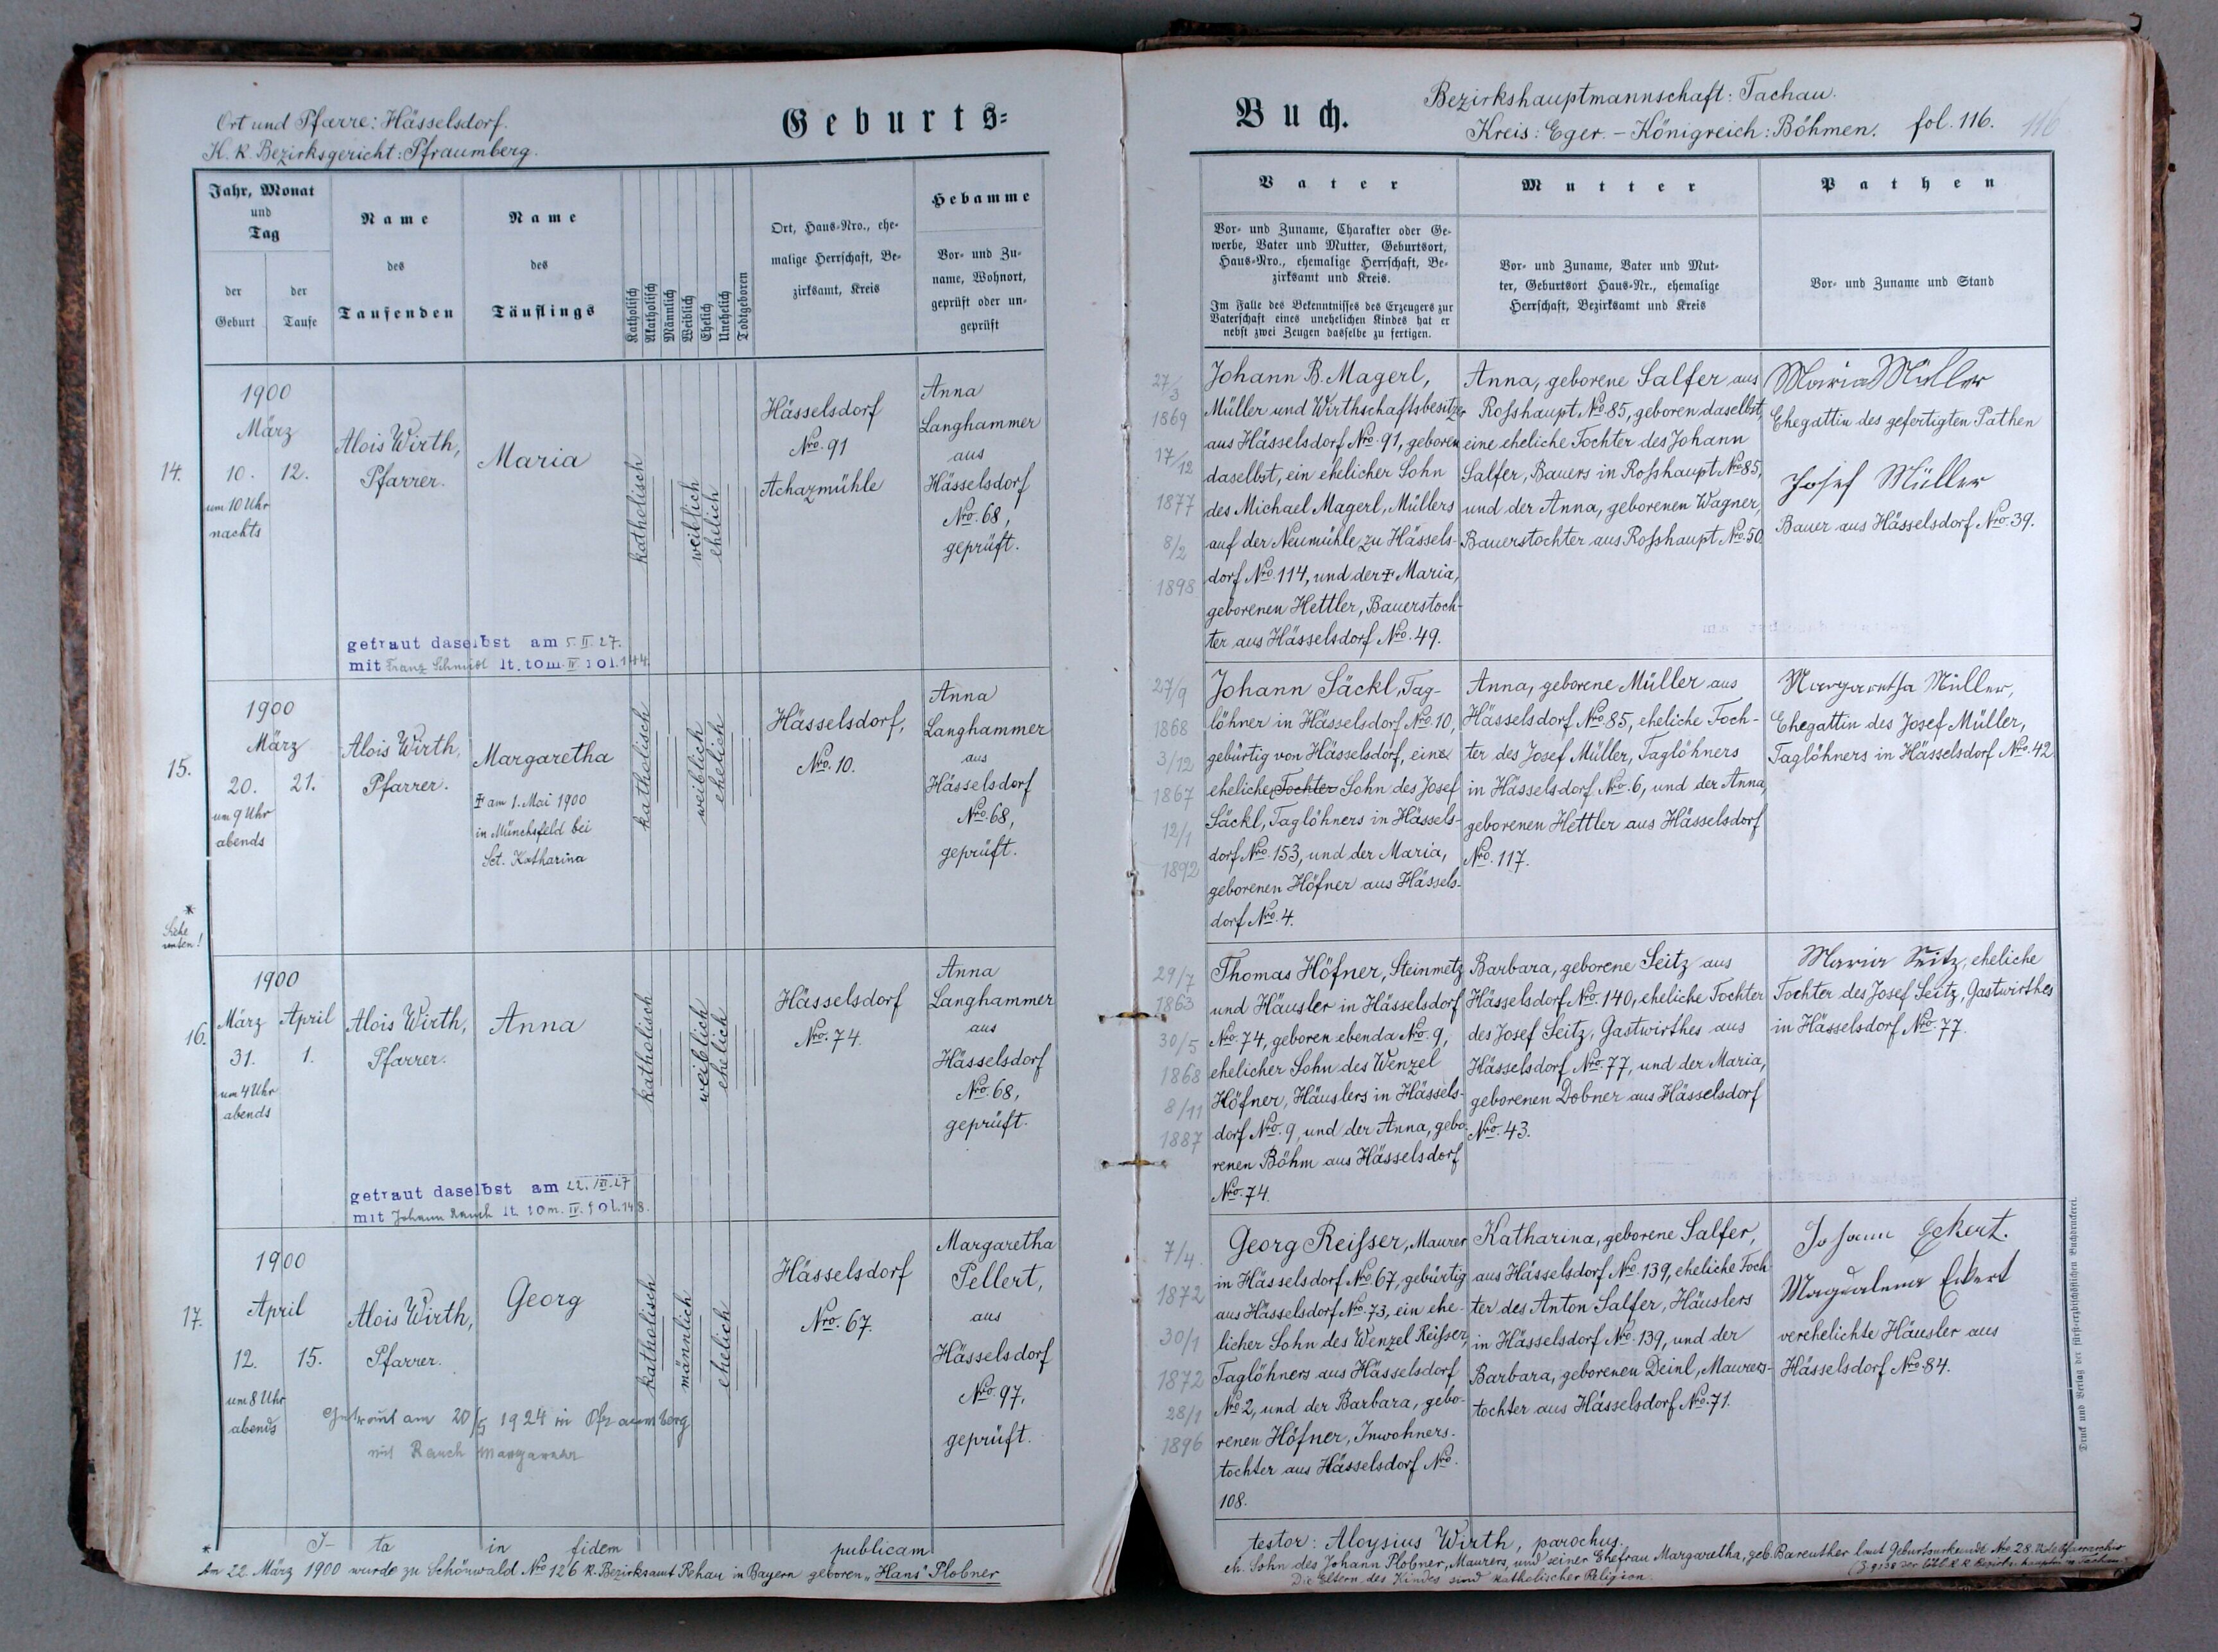 Ort und Pfarre: Hässelsdorf.
K. k. Bezirksgericht: Pfraumberg.
Geburts-
Jahr, Monat
und
Tag
der
Geburt
der
Taufe
Name
des
Taufenden
Name
des
Täuflings
Katholisch
Akatholisch
Männlich
Weiblich
Ehelich
Unehelich
Todtgeboren
Ort, Haus-Nro., ehe-
malige Herrschaft, Be-
zirksamt, Kreis
Hebamme
Vor- und Zu-
name, Wohnort,
geprüft oder un-
geprüft
14.
1900
März
10. 12.
um 10 Uhr
nachts
Alois Wirth,
Pfarrer.
Maria
katholisch
weiblich
ehelich
Hässelsdorf
Nro. 91
Achazmühle
Anna
Langhammer
aus
Hässelsdorf
Nro. 68,
geprüft.
getraut daselbst am 5. II. 27.
mit Franz Schmidl lt. tom. IV. fol. 144.
15.
1900
März
20. 21.
um 9 Uhr
abends
Alois Wirth,
Pfarrer.
Margaretha
† am 1. Mai 1900
in Münchsfeld bei
Sct. Katharina
katholisch
weiblich
ehelich
Hässelsdorf,
Nro. 10.
Anna
Langhammer
aus
Hässelsdorf
Nro. 68,
geprüft.
*
Siehe
unten!
16.
1900
März April
31. 1.
um 4 Uhr
abends
Alois Wirth,
Pfarrer.
Anna
katholisch
weiblich
ehelich
Hässelsdorf
Nro. 74.
Anna
Langhammer
aus
Hässelsdorf
Nro. 68,
geprüft.
getraut daselbst am 27
mit Johann Rauch lt. tom. IV. fol. 148.
17.
1900
April
12. 15.
um 8 Uhr
abends
Alois Wirth,
Pfarrer.
Georg
katholisch
männlich
ehelich
Hässelsdorf
Nro. 67.
Margaretha
Pellert,
aus
Hässelsdorf
Nro. 97,
geprüft.
Getraut am 20/5 1924 in Pfraumberg
mit Rauch Margareta
I-ta in fidem publicam
* Am 22. März 1900 wurde zu Schönwald Nro 126 K. Bezirksamt Rehau in Bayern geboren „Hans" Plobner
Buch.
Bezirkshauptmannschaft: Tachau.
Kreis: Eger. – Königreich: Böhmen. fol. 116. 116
Vater
Vor- und Zuname, Charakter oder Ge-
werbe, Vater und Mutter, Geburtsort,
Haus-Nro., ehemalige Herrschaft, Be-
zirksamt und Kreis.
Im Falle des Bekenntnisses des Erzeugers zur
Vaterschaft eines unehelichen Kindes hat er
nebst zwei Zeugen dasselbe zu fertigen.
Mutter
Vor- und Zuname, Vater und Mut-
ter, Geburtsort Haus-Nr., ehemalige
Herrschaft, Bezirksamt und Kreis
Pathen
Vor- und Zuname und Stand
27/3
1869
17/12
1877
8/2
1898
Johann B. Magerl,
Müller und Wirthschaftsbesitzer
aus Hässelsdorf Nro. 91, geboren
daselbst, ein ehelicher Sohn
des Michael Magerl, Müllers
auf der Neumühle zu Hässels-
dorf Nro. 114, und der † Maria,
geborenen Hettler, Bauerstoch-
ter aus Hässelsdorf Nro. 49.
Anna, geborene Salfer aus
Rosshaupt No. 85, geboren daselbst,
eine eheliche Tochter des Johann
Salfer, Bauers in Rosshaupt No. 85,
und der Anna, geborenen Wagner,
Bauerstochter aus Rosshaupt No. 50.
Maria Müller
Ehegattin des gefertigten Pathen
Josef Müller
Bauer aus Hässelsdorf Nro. 39.
27/9
1868
3/12
1867
12/1
1892
Johann Säckl, Tag-
löhner in Hässelsdorf Nro. 10,
gebürtig von Hässelsdorf, eine
ehelicher Tochter Sohn des Josef
Säckl, Taglöhners in Hässels-
dorf Nro. 153, und der Maria,
geborenen Höfner aus Hässels-
dorf Nro. 4.
Anna, geborene Müller aus
Hässelsdorf No. 85, eheliche Toch-
ter des Josef Müller, Taglöhners
in Hässelsdorf Nro. 6, und der Anna,
geborenen Hettler aus Hässelsdorf
Nro. 117.
Margaretha Müller,
Ehegattin des Josef Müller,
Taglöhners in Hässelsdorf Nro. 42
29/7
1863
30/5
1868
8/11
1887
Thomas Höfner, Steinmetz
und Häusler in Hässelsdorf
Nro. 74, geboren ebenda Nro. 9,
ehelicher Sohn des Wenzel
Höfner, Häuslers in Hässels-
dorf Nro. 9, und der Anna, gebo-
renen Böhm aus Hässelsdorf
Nro. 74.
Barbara, geborene Seitz aus
Hässelsdorf Nro. 140, eheliche Tochter
des Josef Seitz, Gastwirthes aus
Hässelsdorf Nro. 77, und der Maria,
geborenen Dobner aus Hässelsdorf
Nro. 43.
Maria Seitz, eheliche
Tochter des Josef Seitz, Gastwirthes
in Hässelsdorf Nro. 77.
7/4
1872
30/1
1872
28/1
1896
Georg Reisser, Maurer
in Hässelsdorf Nro 67, gebürtig
aus Hässelsdorf Nro. 73, ein ehe-
licher Sohn des Wenzel Reisser,
Taglöhners aus Hässelsdorf
Nro 2, und der Barbara, gebo-
renen Höfner, Inwohners-
tochter aus Hässelsdorf Nro.
108.
Katharina, geborene Salfer,
aus Hässelsdorf Nro. 139, eheliche Toch-
ter des Anton Salfer, Häuslers
in Hässelsdorf Nro. 139, und der
Barbara, geborenen Deinl, Maurers-
tochter aus Hässelsdorf Nro. 71.
Johann Eckert.
Magdalena Eckert
verehelichte Häusler aus
Hässelsdorf Nro. 84.
testor: Aloysius Wirth, parochus.
eh. Sohn des Johann Plobner, Maurers, und seiner Ehefrau Margaretha, geb. Bareuther laut Geburtsurkunde Nro. 28. Vide Pfarrarchiv
Die Eltern des Kindes sind katholischer Religion.
Druck und Verlag der fürst-erzbischöflichen Buchdruckerei.